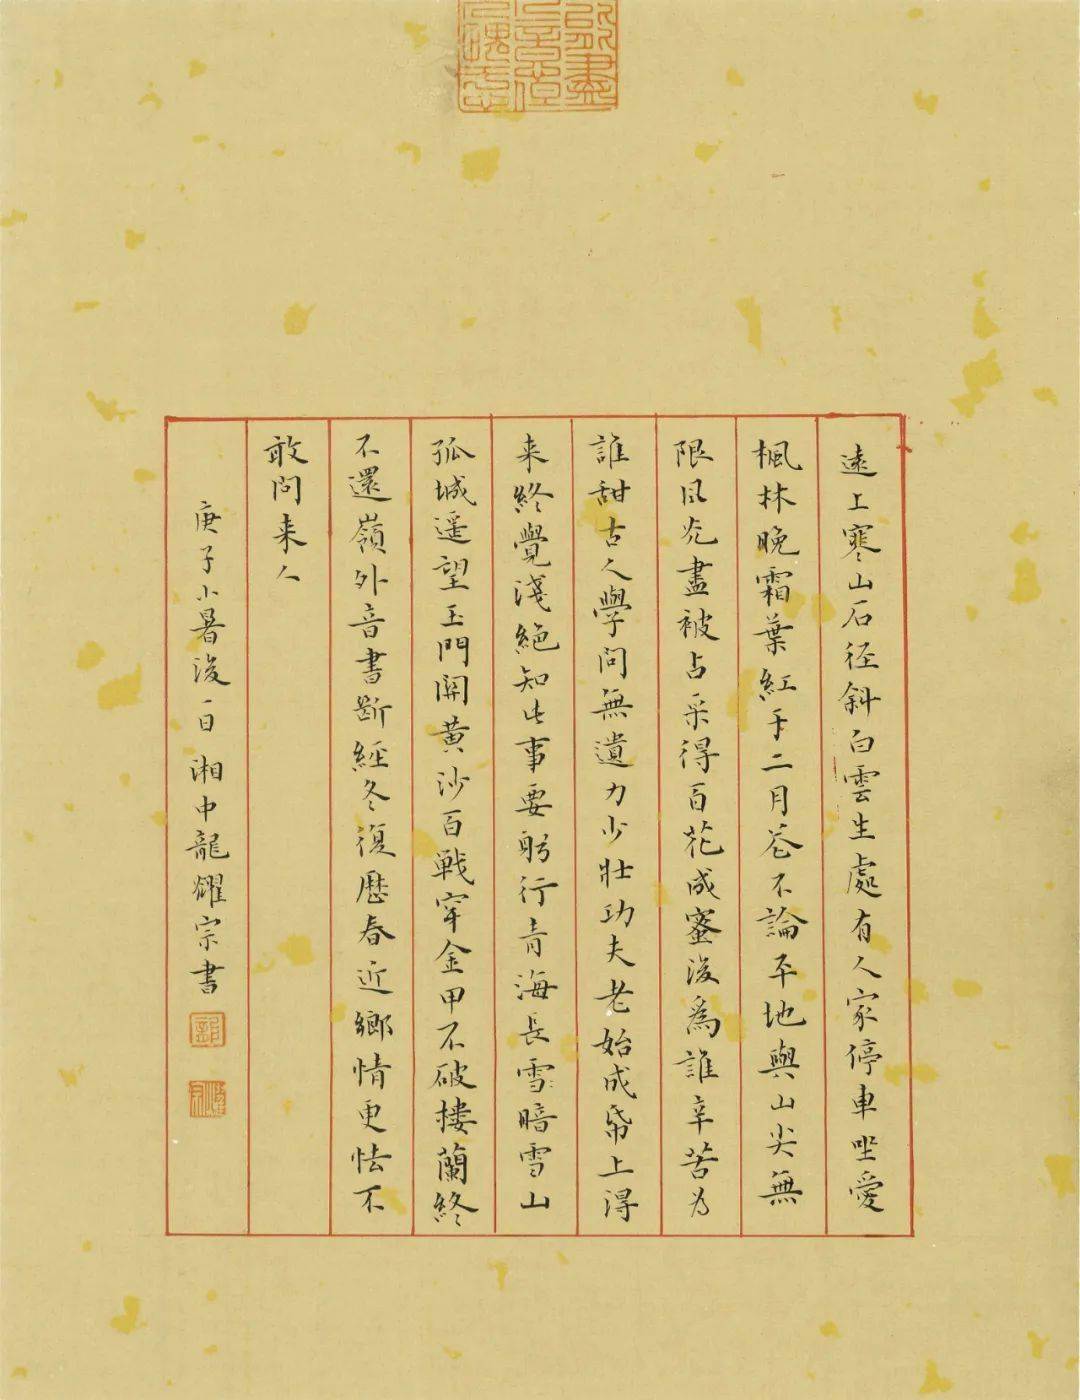 遠上寒山石径斜白雲生處有人家停車坐愛
楓林晚霜葉紅于二月花不論平地與山尖無
限風光盡被占采得百花成蜜後為誰辛苦為
誰甜古人學問無遺力少壯功夫老始成帋上得
来終覺淺絕知此事要躬行青海長雪暗雪山
孤城遥望玉門関黄沙百戰穿金甲不破樓蘭終
不還嶺外音書斷經冬復歷春近鄉情更怯不
敢問来人
庚子小暑後一日 湘中龍耀宗書